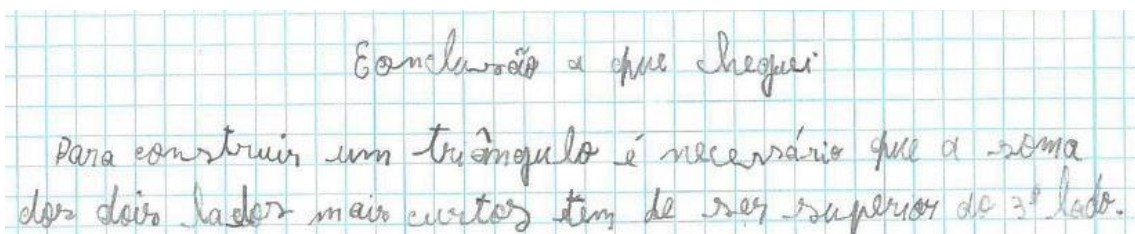 Conclusão a que cheguei
Para construir um triângulo é necessário que a soma
dos dois lados mais curtos tem de ser superior ao 3º lado.